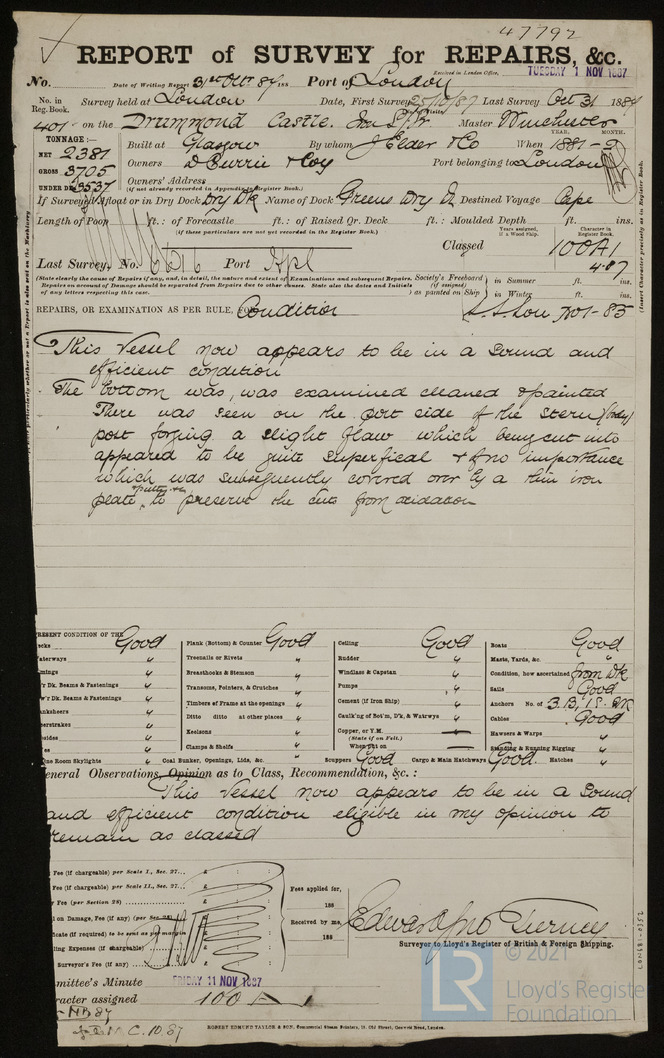 47792
REPORT of SURVEY for REPAIRS, &c.
No. Date of Writing Report 31st Octr 87 188 Port of London Received in London Office, TUESDAY 1 NOV 1887
No. in Reg. Book. Survey held at London Date, First Survey 25/10/87 Last Survey Oct 31 1887
401 on the Drummond Castle. Iron Master Winchester
TONNAGE:— YEAR. MONTH.
NET 2381 Built at Glasgow By whom J Elder & Co When 1881-2
GROSS 3705 Owners D Currie & Coy Port belonging to London
UNDER DK 3537 Owners' Address
(if not already recorded in Appendix to Register Book.)
If Surveyed Afloat or in Dry Dock Dry Dk Name of Dock Greens Dry Dk Destined Voyage Cape
Length of Poop ft.: of Forecastle ft.: of Raised Qr. Deck ft.: Moulded Depth ft. ins.
(if these particulars are not yet recorded in the Register Book.)
Years assigned, if a Wood Ship. Character in Register Book.
Classed 100A1
4.87
Last Survey, No. 6616 Port Hpl
(State clearly the cause of Repairs if any, and, in detail, the nature and extent of Examinations and subsequent Repairs. Repairs on account of Damage should be separated from Repairs due to other causes. State also the dates and Initials of any letters respecting this case.
Society's Freeboard (if assigned) as painted on Ship in Summer ft. ins.
in Winter ft. ins.
REPAIRS, OR EXAMINATION AS PER RULE, FOR Condition S.S. Lon No1-85
This Vessel now appears to be in a Sound and
efficient condition
The bottom was, was examined cleaned & painted
There was seen on the port side of the Stern (body)
post forging a slight flaw which being cut into
appeared to be quite superfical & of no importance
which was subsequently covered over by a thin iron
plate, to preserve the cut from oxidation
PRESENT CONDITION OF THE
Decks Good Plank (Bottom) & Counter Good Ceiling Good Boats Good
Waterways " Treenails or Rivets " Rudder " Masts, Yards, &c. "
Breasthooks & Stemson " Windlass & Capstan " Condition, how ascertained from Dk
Dk. Beams & Fastenings " Transoms, Pointers, & Crutches " Pumps " Sails Good
Dk. Beams & Fastenings " Timbers of Frame at the openings " Cement (if Iron Ship) " Anchors No. of 3.B, 1S. 2K
Ditto ditto at other places " Caulk'ng of Bot'm, D'k, & Waterwys " Cables Good
Keelsons " Copper, or Y.M. — Hawsers & Warps "
(State if on Felt.)
Clamps & Shelfs " When put on — Standing & Running Rigging "
Engine Room Skylights " Coal Bunker, Openings, Lids, &c. " Scuppers Good Cargo & Main Hatchways Good Hatches "
General Observations, Opinion as to Class, Recommendation, &c. :
This Vessel now appears to be in a Sound
and efficient condition eligible in my opinion to
remain as classed
Fee (if chargeable) per Scale I., Sec. 27... £ : :
Fee (if chargeable) per Scale II., Sec. 27... £ : :
Fee (per Section 28) £ : :
on Damage, Fee (if any) (per Sec. £ : :
Certificate (if required) to be sent as per margin
Travelling Expenses (if chargeable) £ : :
Surveyor's Fee (if any) £ : :
Fees applied for, 188
Received by me, 188
Edward Jno Tierney
Surveyor to Lloyd's Register of British & Foreign Shipping.
Committee's Minute FRIDAY 11 NOV 1887
Character assigned 100 A 1
NB 87
M.C. 10.87
ROBERT EDMUND TAYLOR & SON, Commercial Steam Printers, 19, Old Street, Goswell Road, London.
LR
© 2021
Lloyd's Register
Foundation